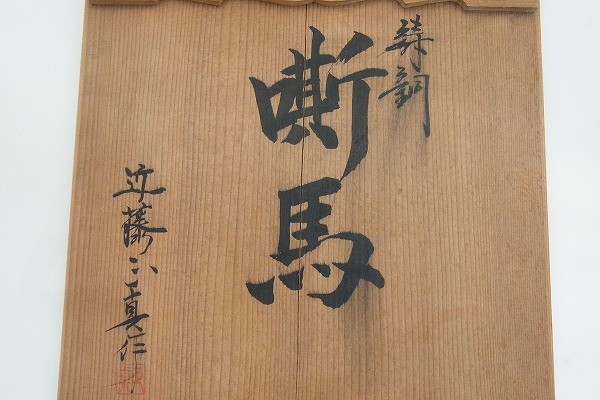 鋳銅
嘶馬
近藤
真仁